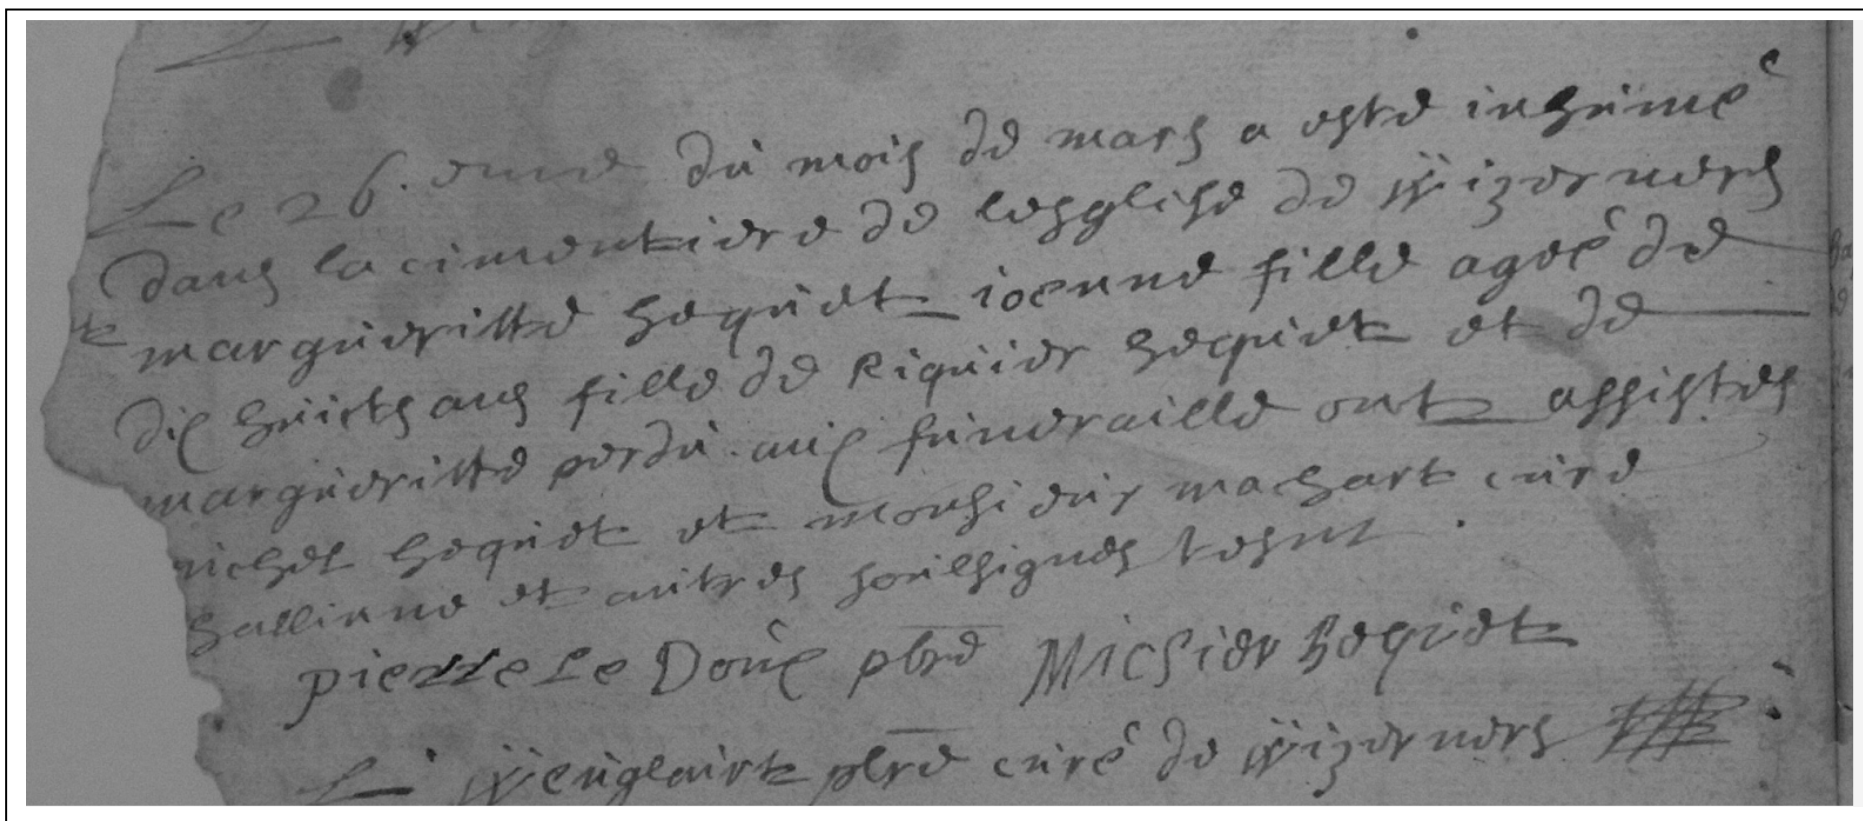 Le 26. eme du mois de mars a esté inhumée
dans la cimentiere de lesglise de Wizerners
margueritte hequet ioenne fille ageé de
dix huicts ans fille de Riquier hequet et de
margueritte perdu. aux funeraille ont assistes
michel hequet et monsieur machart cure
hallinne et autres soulsignes tesm
pierre Le Doux pbre Michier hequet
Wenglairt pbre curé de Wizerners